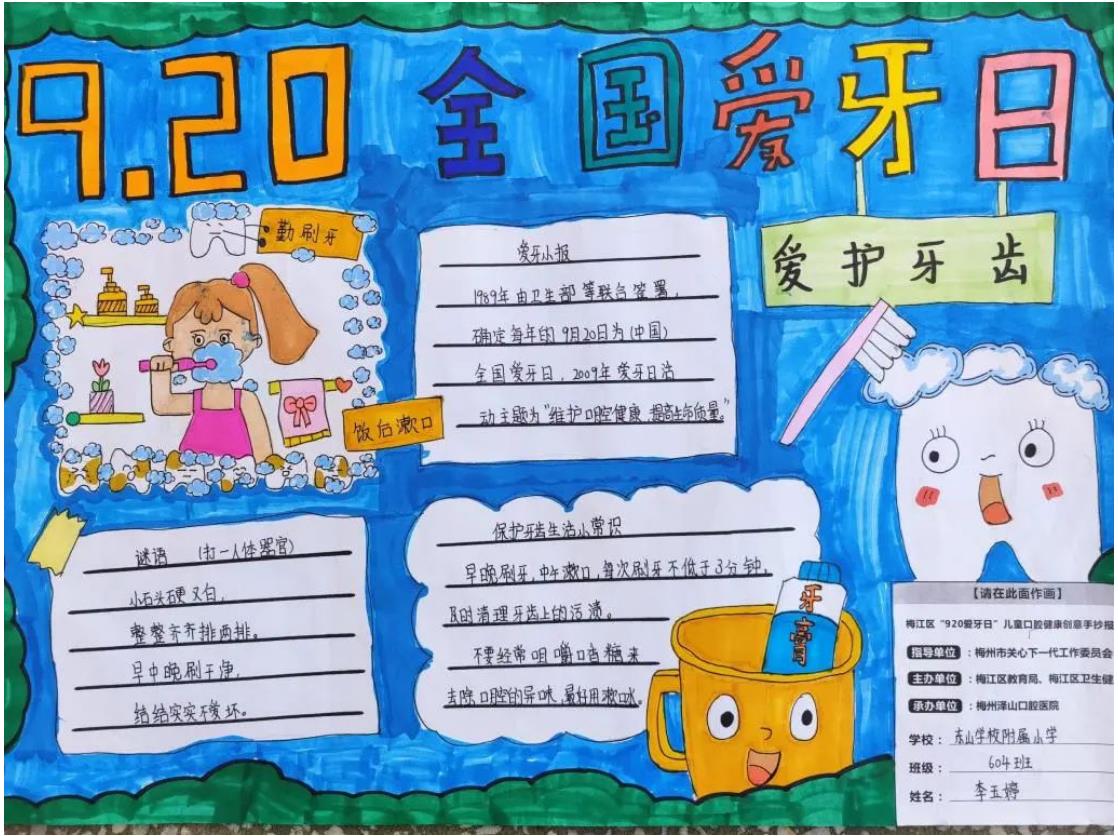 9.20 全国爱牙日
勤刷牙
饭后漱口
爱牙小报
1989年由卫生部等联合签署，
确定每年的9月20日为(中国)
全国爱牙日，2009年爱牙日活
动主题为"维护口腔健康，提高生命质量。"
爱护牙齿
谜语 (打一人体器官)
小石头硬又白，
整整齐齐排两排。
早中晚刷干净，
结结实实不爱坏。
保护牙齿生活小常识
早晚刷牙，中午漱口，每次刷牙不低于3分钟，
及时清理牙齿上的污渍。
不要经常咀嚼口香糖来
去除口腔的异味，最好用漱口水。
牙膏
【请在此面作画】
梅江区“920爱牙日”儿童口腔健康创意手抄报
指导单位：梅州市关心下一代工作委员会
主办单位：梅江区教育局、梅江区卫生健
承办单位：梅州泽山口腔医院
学校：东山学校附属小学
班级：604班
姓名：李玉婷